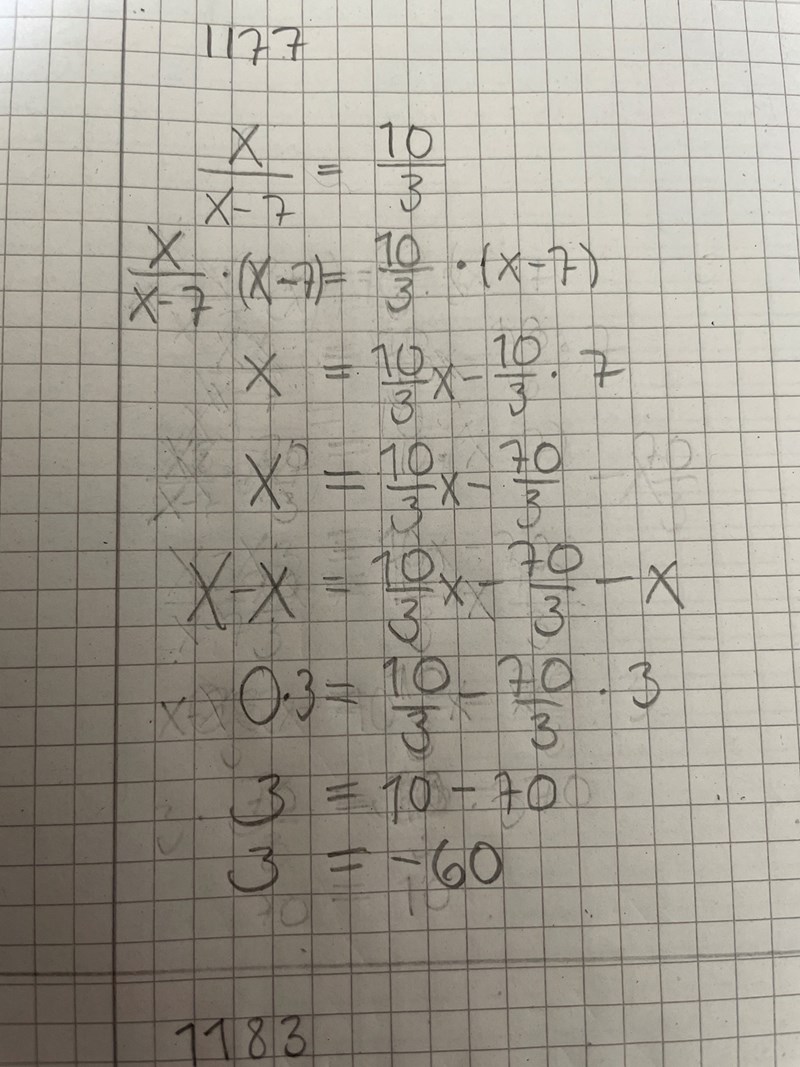 1177
x/(x-7) = 10/3
x/(x-7) · (x-7) = 10/3 · (x-7)
x = 10/3 x - 10/3 · 7
x = 10/3 x - 70/3
x - x = 10/3 x - 70/3 - x
0 · 3 = 10/3 - 70/3 · 3
3 = 10 - 70
3 = -60
1183